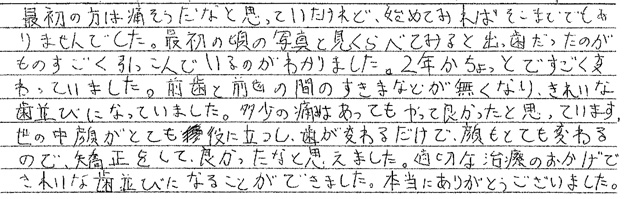 最初の方は痛そうだなと思っていたけれど、始めてみればそこまででもあ
りませんでした。最初の頃の写真と見くらべてみると出っ歯だったのが
ものすごく引っこんでいるのがわかりました。2年からちょっとですごく変
わっていました。前歯と前歯の間のすきまなどが無くなり、きれいな
歯並びになっていました。多少の痛はあってもやって良かったと思っています。
世の中顔がとても役に立つし、歯が変わるだけで、顔もとても変わる
ので、矯正をして、良かったなと思えました。適切な治療のおかげで
きれいな歯並びになることができました。本当にありがとうございました。